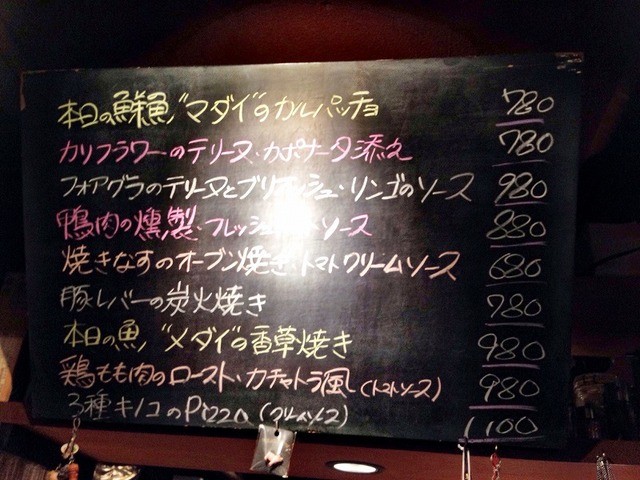 本日の鮮魚"マダイ"のカルパッチョ 780
カリフラワーのテリーヌ・カポナータ添え 780
フォアグラのテリーヌとブリオッシュ・リンゴのソース 980
鴨肉の燻製・フレッシュ ソース 880
焼きなすのオーブン焼き・トマトクリームソース 680
豚レバーの炭火焼き 780
本日の魚"メダイ"の香草焼き 980
鶏もも肉のロースト・カチャトラ風(トマトソース) 980
3種キノコのPizza(クリームソース) 1100